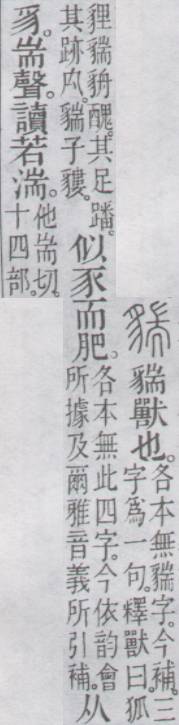 貒貒獸也。各本無貒字。今補。三
字爲一句。釋獸曰。狐
貍貒貈醜。其足蹯。
其跡禸。貒子貗。
似豕而肥。各本無此四字。今依韵會
所據及爾雅音義所引補。从
豸。耑聲。讀若湍。他耑切。
十四部。